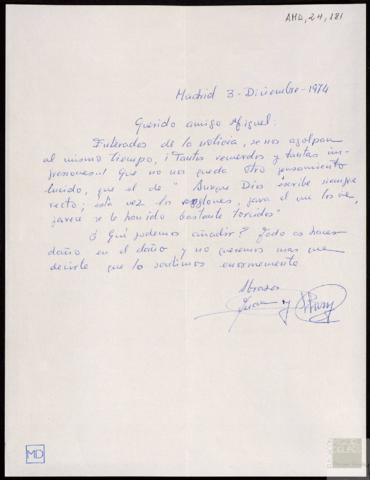 AMD, 24, 181
Madrid 3-Diciembre-1974
Querido amigo Miguel:
Enterados de la noticia, se nos agolpan
al mismo tiempo, ¡Tantos recuerdos y tantas im-
presiones! Que no nos queda otro pensamiento
lucido, que el de "Aunque Dios escribe siempre
recto; esta vez los renglones, para el que los ve,
parece se le han ido bastante torcidos"
¿Qué podemos añadir? Todo es hacer
daño en el daño y no queremos mas que
decirte que lo sentimos enormemente
Abrazos
Juan y
MD